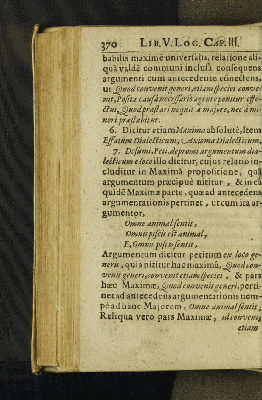 370 LIB. V. LOG. CAP. III.
babilis maximè universalis, relatione ali-
quâ valdè communi inclusâ consequens
argumenti cum antecedente cónectens,
ut Quod convenit generi, etiam speciei conve-
nit, Positâ causâ necessariò agente ponitur effe-
ctus, Quod præstari nequit à majore, nec à mi-
nori præstabitur.
6. Dicitur etiam Maxima absolutè, Item
Effatum Dialecticum, Axioma Dialecticum,
7. Desumi, Peti, depromi argumentum dia-
lecticum è loco illo dicitur, cujus relatio in-
cluditur in Maximâ propositione, quâ
argumentum præcipuè nititur, & in eâ
quidē Maximæ parte, quæ ad antecedens
argumentationis pertinet, ut cum ita ar-
gumentor,
Omne animal sentit,
Omnis piscis est animal,
E, Omnis piscis sentit,
Argumentum dicitur petitum ex loco ge-
neris, quia nititur hac maximâ, Quod con-
venit generi, convenit etiam speciei, & pars
hæc Maximæ, Quod convenit generi, perti-
net ad antecedens argumentationis nem-
pè ad hanc Majorem, Omne animal sentit,
Reliqua verò pars Maximæ, id convenit
etiam